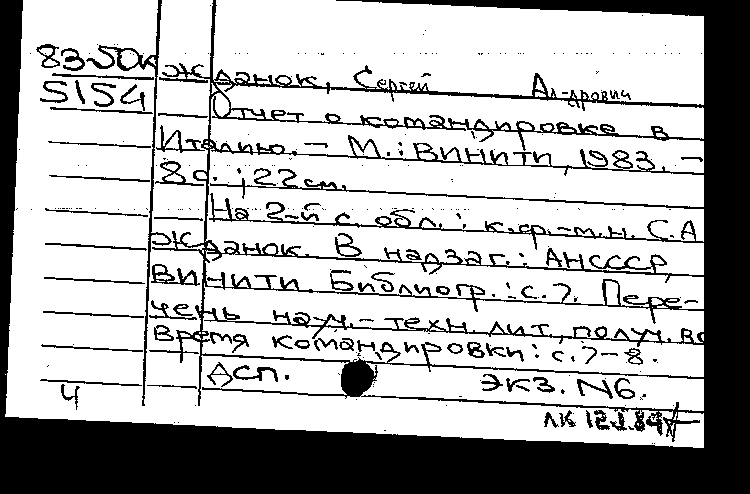 83-50к Жданок, Сергей Ал-дрович
5154 Отчет о командировке в
Италию. – М.: ВИНИТИ, 1983. –
8с. ; 22 см.
На 2-й с. обл.: к.ф.-м.н. С.А
Жданок. В надзаг.: АНСССР,
ВИНИТИ. Библиогр.: с. 7. Пере-
чень науч.- техн. лит., получ. во
время командировки: с. 7-8.
Дсп. экз. N6.
4
ЛК 12.I.84